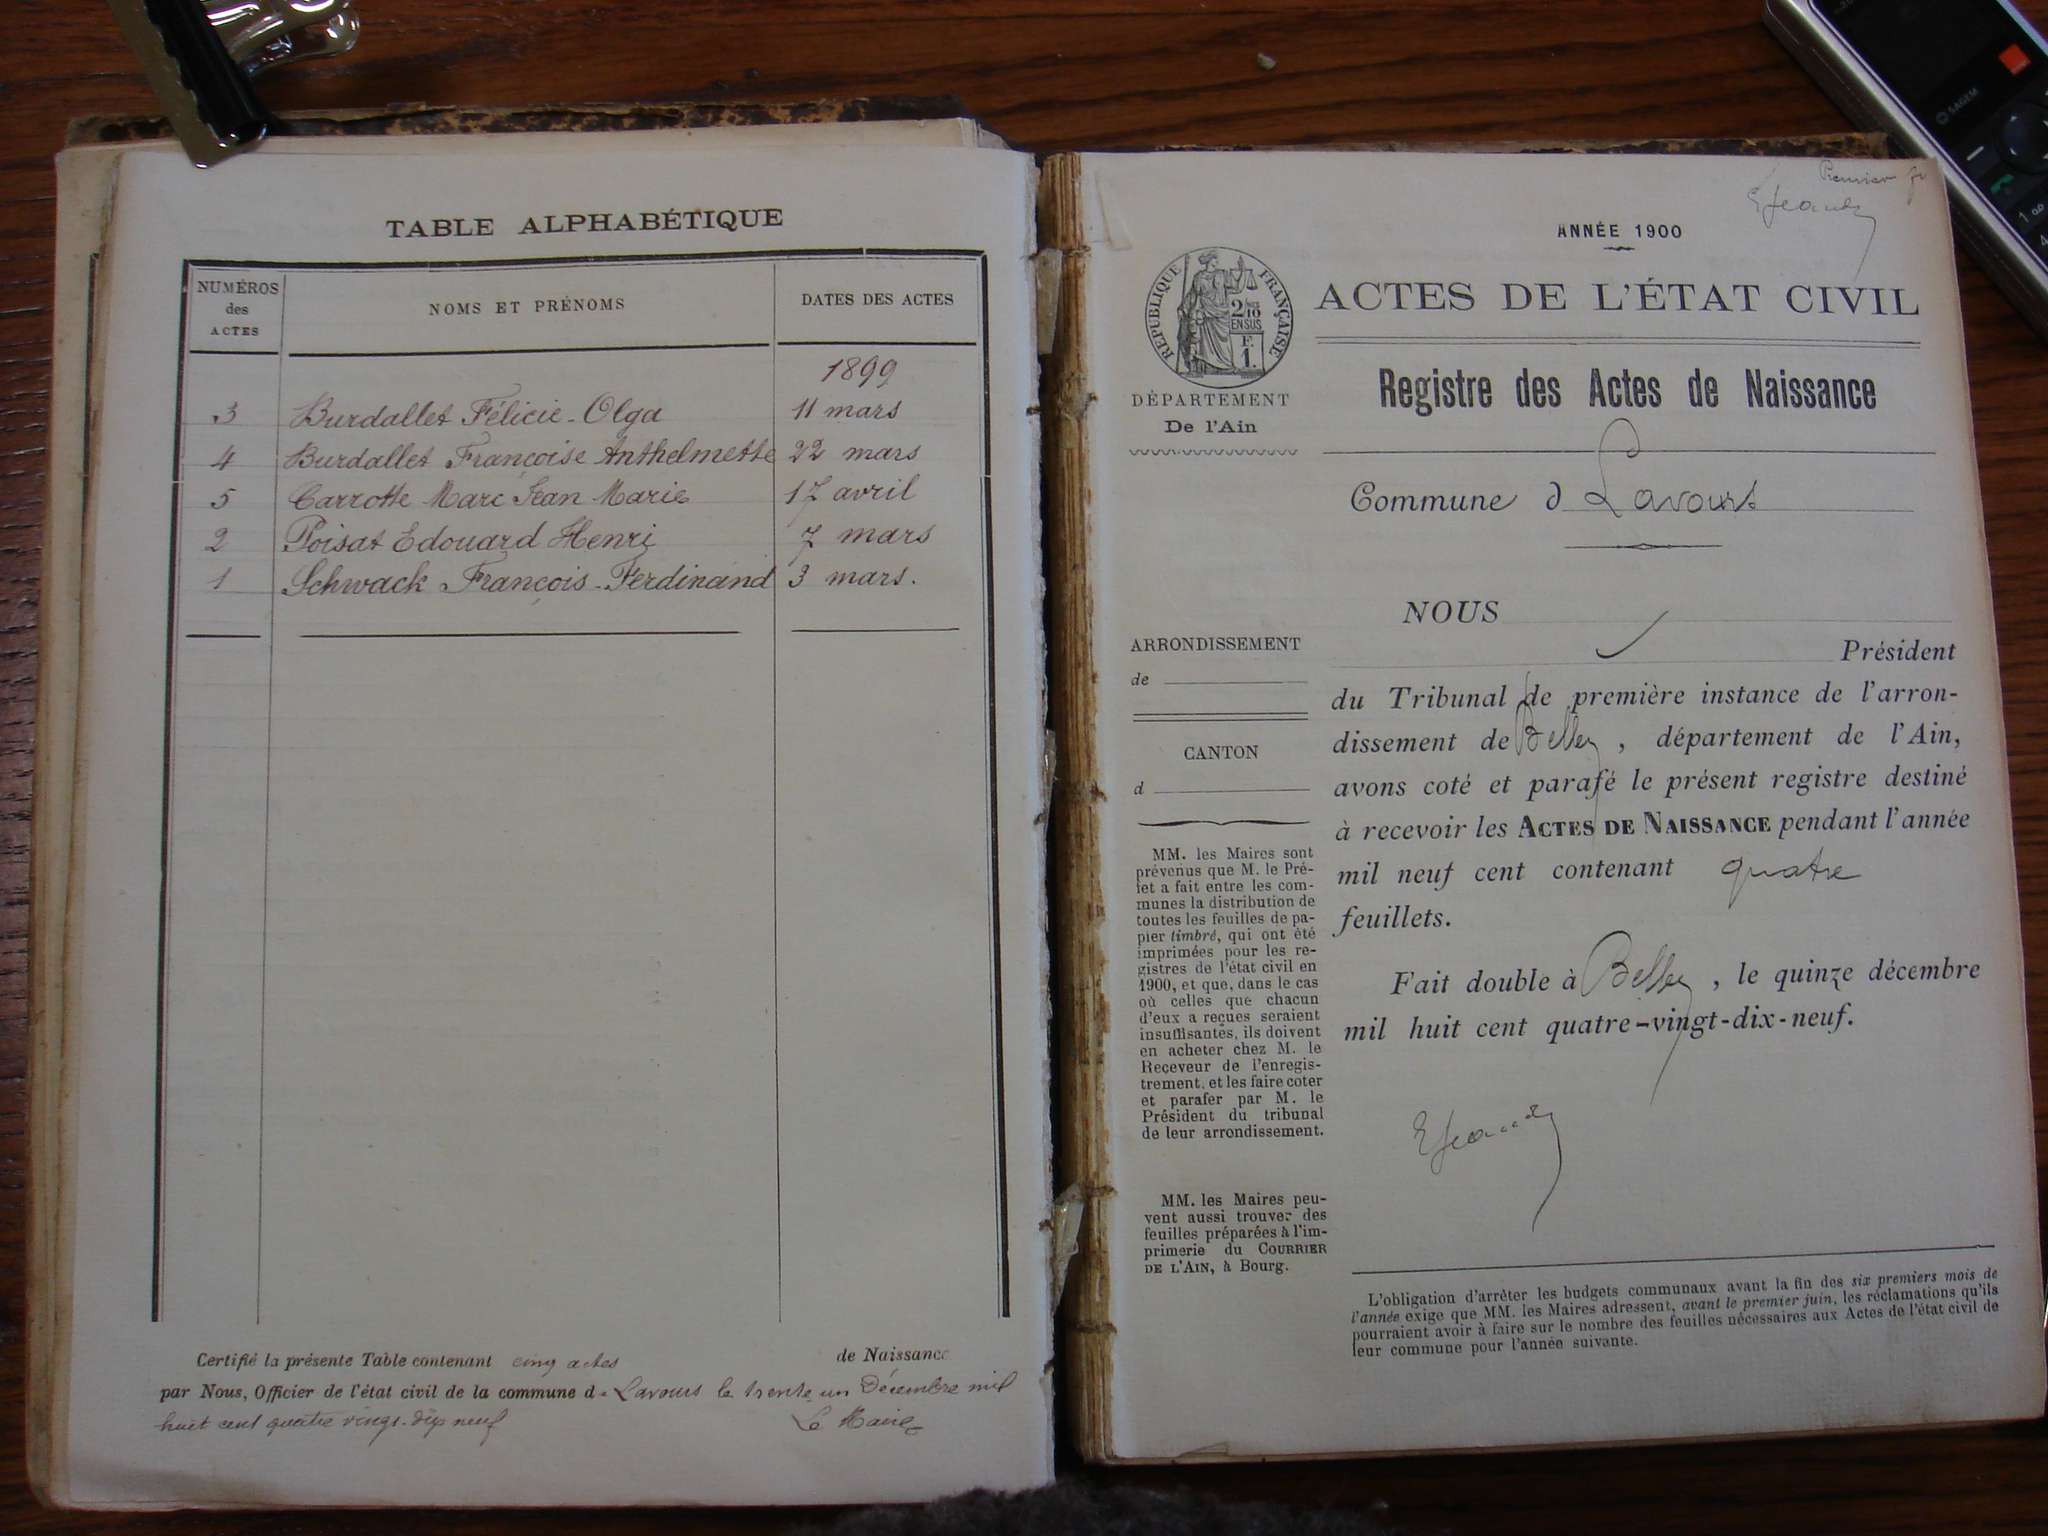 TABLE ALPHABÉTIQUE
NUMÉROS
des
ACTES
NOMS ET PRÉNOMS
DATES DES ACTES
1899
3 Burdallet Félicie-Olga 11 mars
4 Burdallet Françoise Anthelmette 22 mars
5 Carrotte Marc Jean Marie 17 avril
2 Poisat Edouard Henri 7 mars
1 Schwack François-Ferdinand 3 mars.
Certifié la présente Table contenant cinq actes de Naissance
par Nous, Officier de l'état civil de la commune de Lavours le trente un Décembre mil
huit cent quatre vingt-dix neuf Le Maire
Premier
ANNÉE 1900
RÉPUBLIQUE FRANÇAISE
2/10
EN SUS
F.
1.
ACTES DE L'ÉTAT CIVIL
DÉPARTEMENT
De l'Ain
Registre des Actes de Naissance
Commune d Lavours
NOUS
Président
du Tribunal de première instance de l'arron-
dissement de Belley, département de l'Ain,
avons coté et parafé le présent registre destiné
à recevoir les ACTES DE NAISSANCE pendant l'année
mil neuf cent contenant quatre
feuillets.
Fait double à Belley, le quinze décembre
mil huit cent quatre-vingt-dix-neuf.
ARRONDISSEMENT
de
CANTON
d
MM. les Maires sont
prévenus que M. le Pré-
fet a fait entre les com-
munes la distribution de
toutes les feuilles de pa-
pier timbré, qui ont été
imprimées pour les re-
gistres de l'état civil en
1900, et que, dans le cas
où celles que chacun
d'eux a reçues seraient
insuffisantes, ils doivent
en acheter chez M. le
Receveur de l'enregis-
trement, et les faire coter
et parafer par M. le
Président du tribunal
de leur arrondissement.
MM. les Maires peu-
vent aussi trouver des
feuilles préparées à l'im-
primerie du COURRIER
DE L'AIN, à Bourg.
L'obligation d'arrêter les budgets communaux avant la fin des six premiers mois de
l'année exige que MM. les Maires adressent, avant le premier juin, les réclamations qu'ils
pourraient avoir à faire sur le nombre des feuilles nécessaires aux Actes de l'état civil de
leur commune pour l'année suivante.
SAGEM
1
4